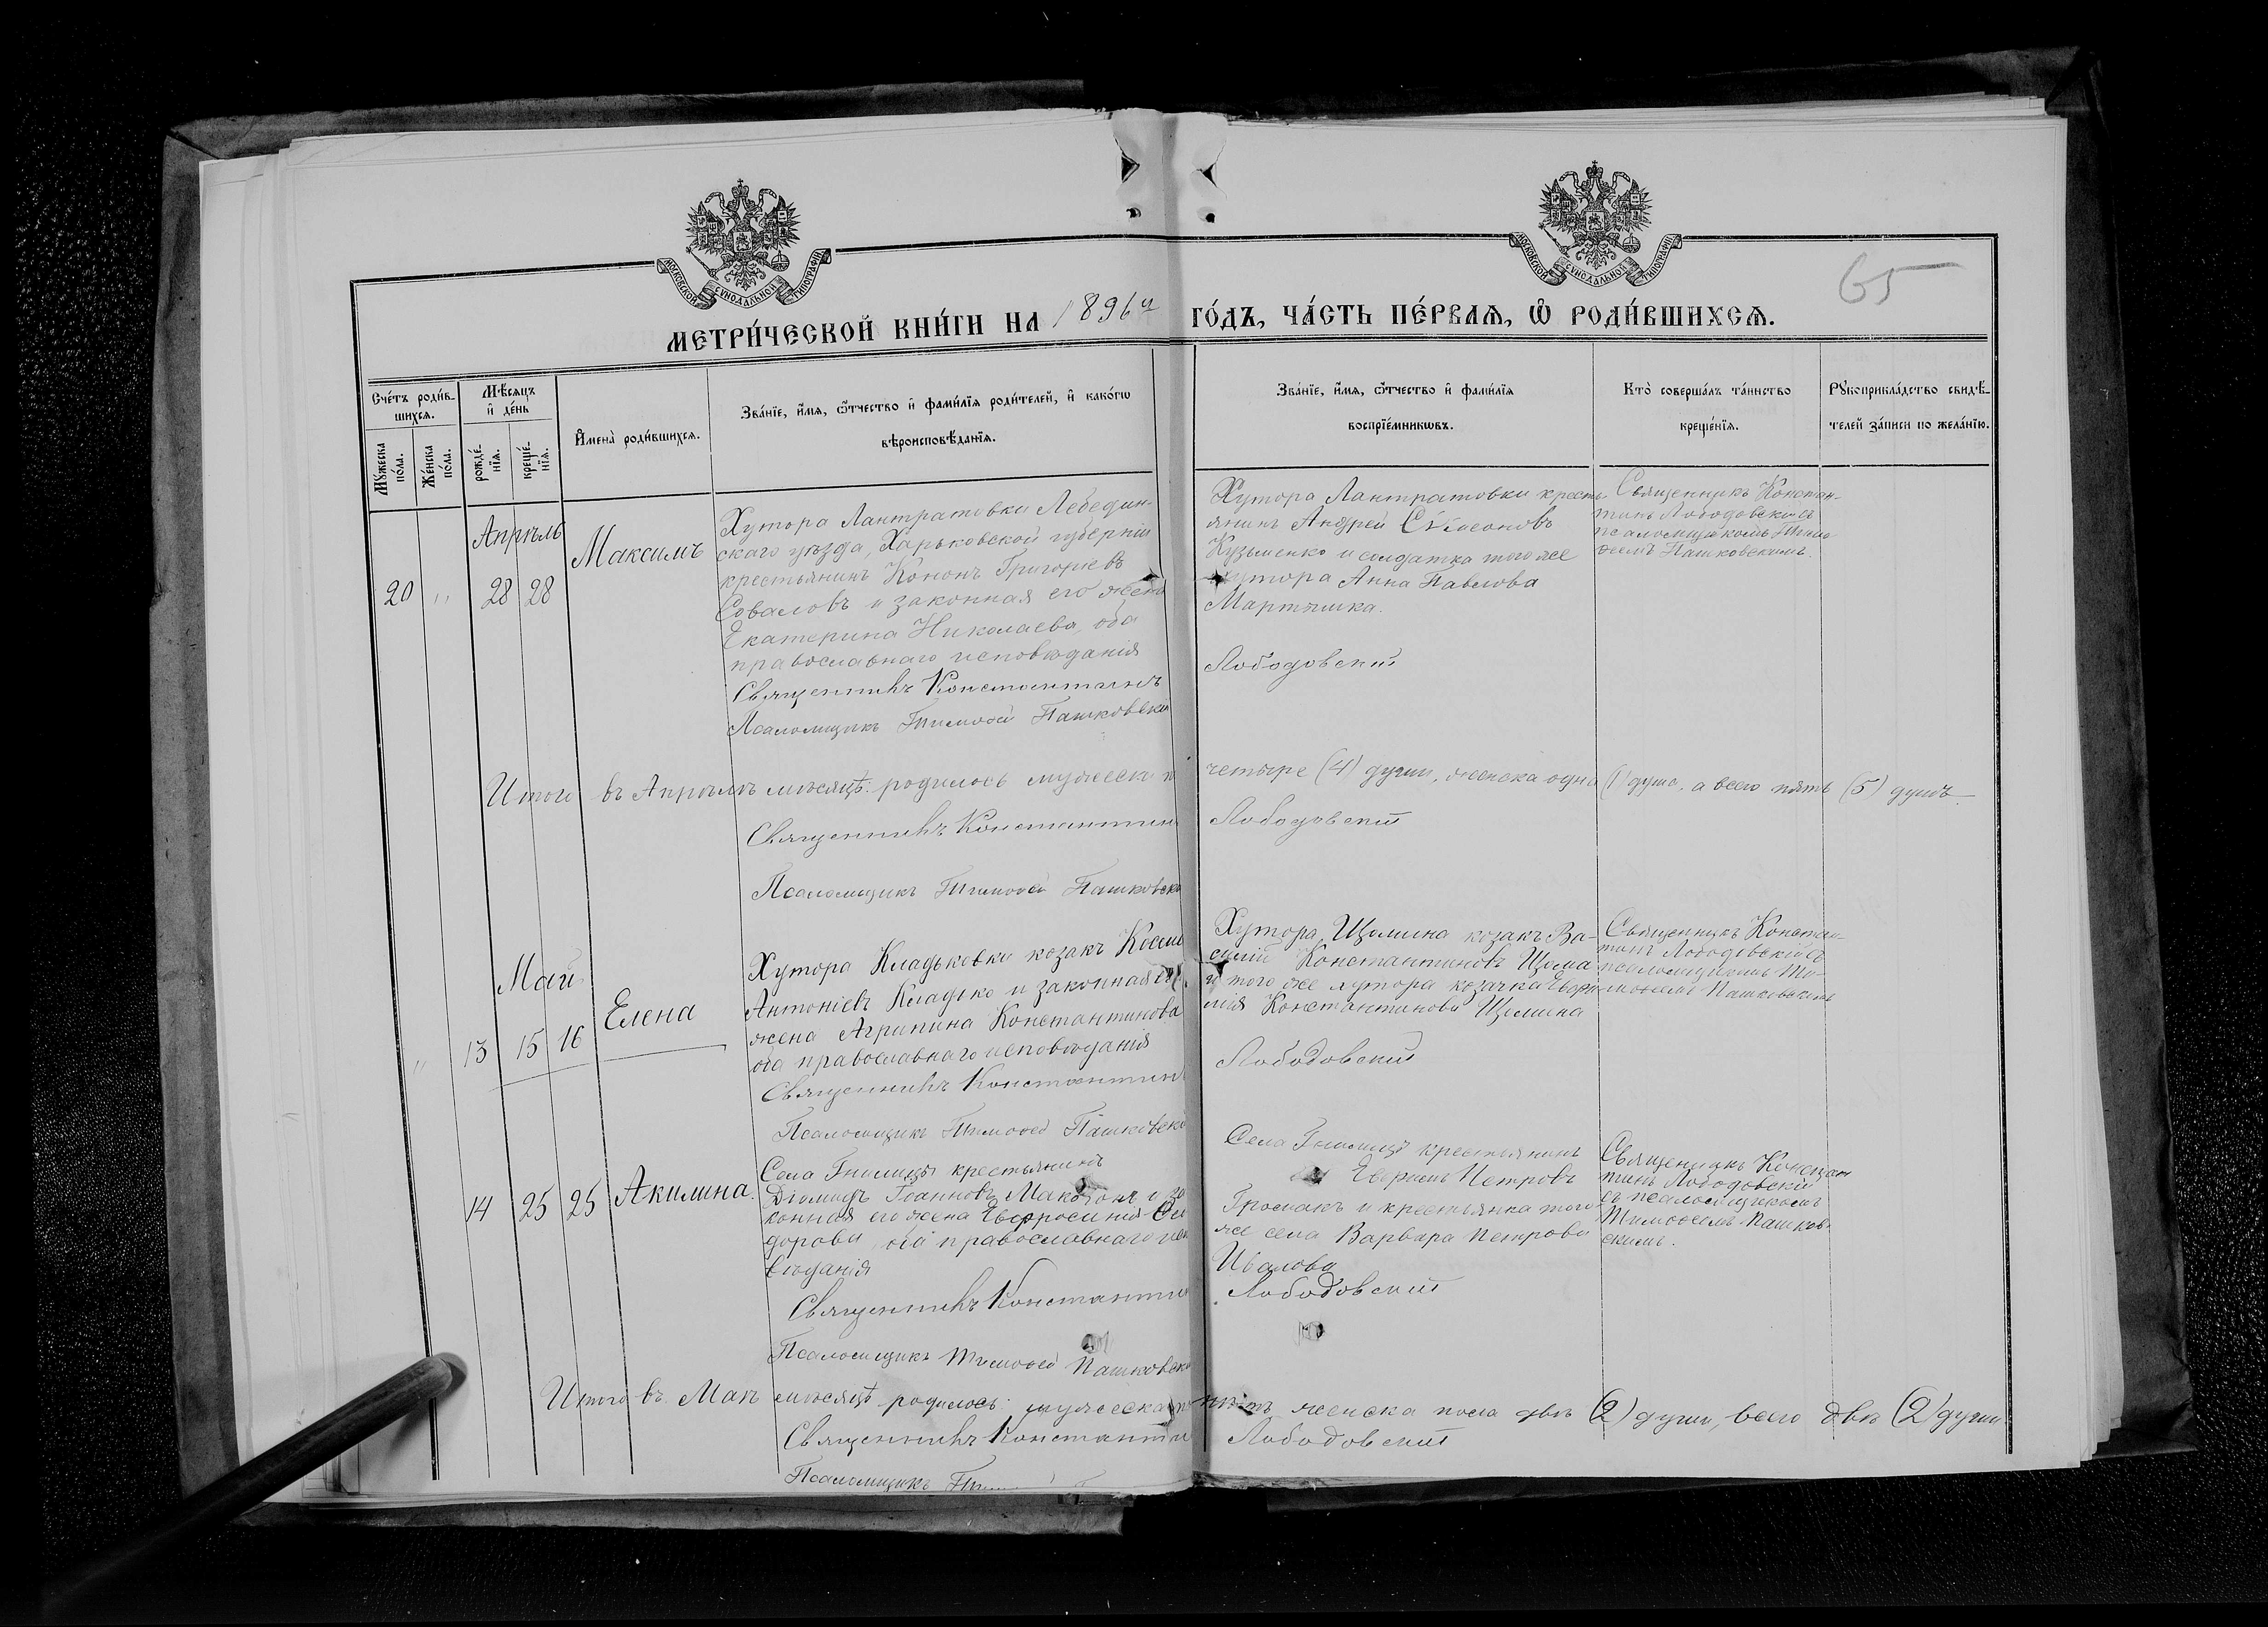 МОСКОВСКОЙ СѴНОДАЛЬНОЙ ТИПОГРАФІИ
МОСКОВСКОЙ СѴНОДАЛЬНОЙ ТИПОГРАФІИ
65
МЕТРИ́ЧЕСКОЙ КНИ́ГИ НА 1896й ГО́ДЪ, ЧА́СТЬ ПЕ́РВАѦ, Ѽ РОДИ́ВШИХСѦ.
Сче́тъ роди́в-
шихсѧ.
Мꙋ́жеска
по́ла.
Же́нска
по́ла.
Мѣ́сѧцъ
и҆ де́нь
рожде́-
нїѧ.
креще́-
нїѧ.
И҆мена̀ роди́вшихсѧ.
Зва́нїе, и҆́мѧ, ѻ҆́тчество и҆ фами́лїѧ роди́телей, и҆ како́гѡ
вѣроисповѣ́данїѧ.
Зва́нїе, и҆́мѧ, ѻ҆́тчество и҆ фами́лїѧ
воспрїе́мникѡвъ.
Кто̀ соверша́лъ та́инство
креще́нїѧ.
Рꙋкоприкла́дство свидѣ́-
телей за́писи по жела́нїю.
Апрѣль
20 " 28 28
Максимъ
Хутора Лантратовки Лебедин-
скаго уѣзда, Харьковской губерніи
крестьянинъ Кононъ Григоріевъ
Соваловъ и законная его жена
Екатерина Николаева, оба
православнаго исповѣданія
Священникъ Константинъ
Псаломщикъ Тимоѳей Пашковскій
Хутора Лантратовки кресть-
янинъ Андрей Сѵмеоновъ
Кузьменко и солдатка того же
хутора Анна Павлова
Лободовскій
Священникъ Констан-
тинъ Лободовскій съ
псаломщикомъ Тимо-
ѳеемъ Пашковскимъ.
Итого въ Апрѣлѣ мѣсяцѣ: родилось мужеска п четыре (4) души, женска одна (1) душа, а всего пять (5) душъ.
Священникъ Константинъ Лободовскій
Псаломщикъ Тимоѳей Пашковскі
Май
" 13 15 16
Елена
Хутора Кладьковки козакъ Косма
Антоніевъ Кладько и законная его
жена Агрипина Константинова
оба православнаго исповѣданія
Священникъ Константинъ
Псаломщикъ Тимоѳей Пашковскі
Хутора Щомина козакъ Ва-
силій Константиновъ Щома
и того же хутора козачка Евфи-
мія Константинова Щомина
Лободовскій
Священникъ Констан-
тинъ Лободовскій съ
псаломщикомъ Ти-
моѳеемъ Пашковскимъ
14 25 25
Акилина.
Села Гнилицы крестьянинъ
Діомидъ Іоанновъ Макогонъ и за
конная его жена Евфросинія Си
дорова, оба православнаго испо
вѣданія
Священникъ Константи
Псаломщикъ Тимоѳей Пашковскі
Села Гнилицы крестьянинъ
Евфимъ Петровъ
и крестьянка того
же села Варвара Петрова
Лободовскій
Священникъ Констан
тинъ Лободовскій
съ псаломщикомъ
Тимоѳеемъ Пашков-
скимъ.
Итого въ Маѣ мѣсяцѣ родилось: мужеска п нѣтъ женска пола двѣ (2) души, всего двѣ (2) души.
Священникъ Константи Лободовскій
Псаломщикъ